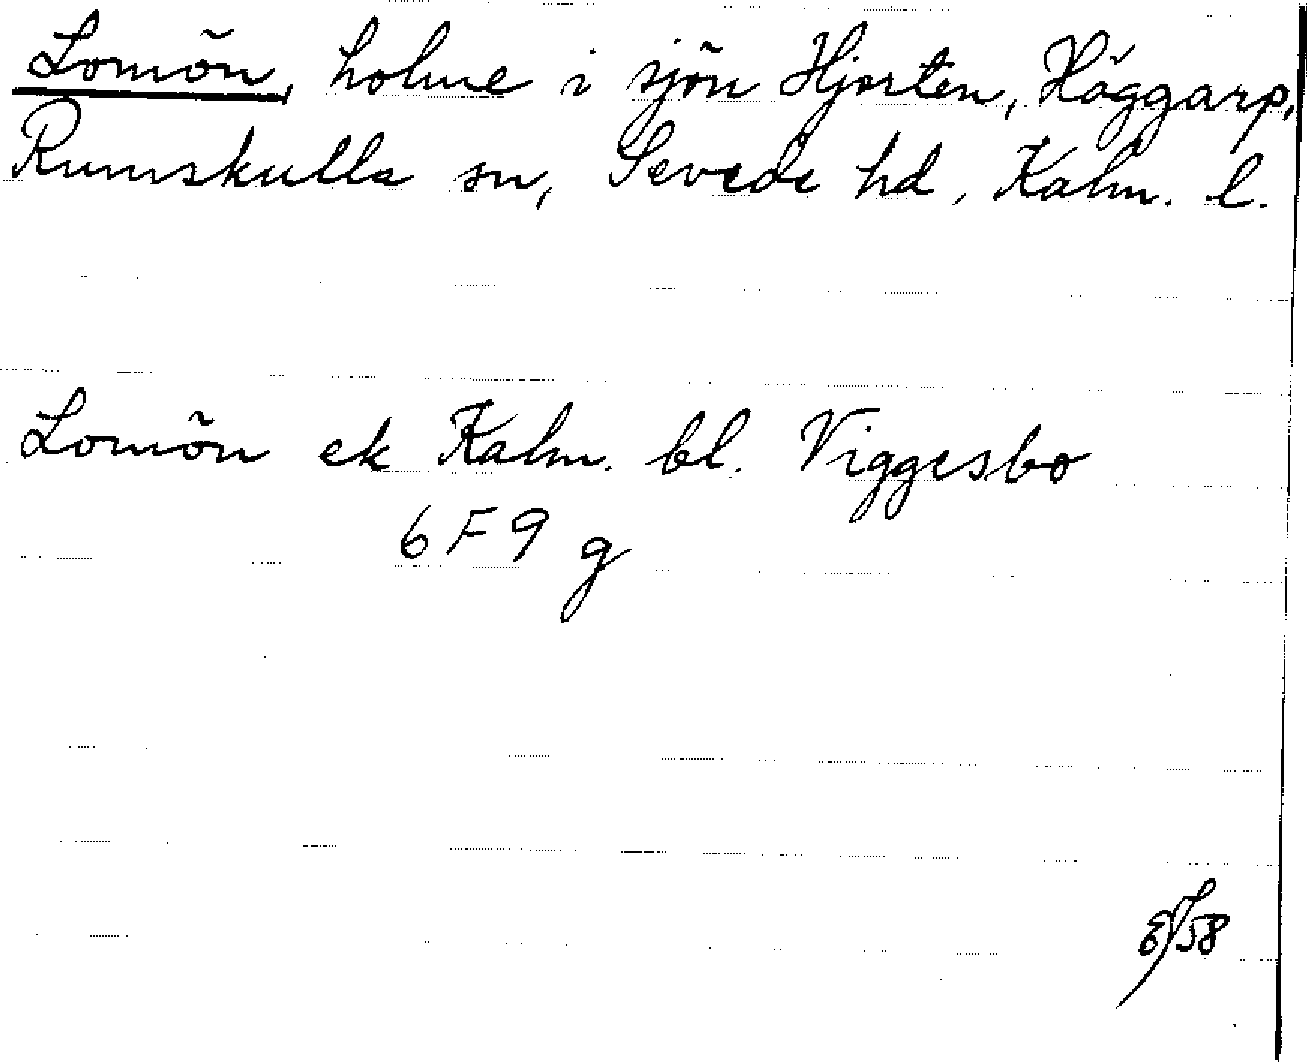 Lomön, holme i sjön Hjorten, Häggarp,
Rumskulla sn, Sevede hd, Kalm. l.
Lomön ek Kalm. bl. Viggesbo
6 F 9 g